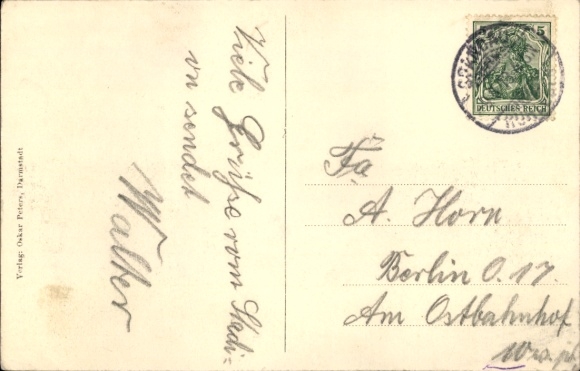 Viele Grüße vom Stedi=
vu sendet
Walter
Verlag: Oskar Peters, Darmstadt
5
DEUTSCHES REICH
Fa
A. Horn
Berlin O. 17.
Am Ostbahnhof